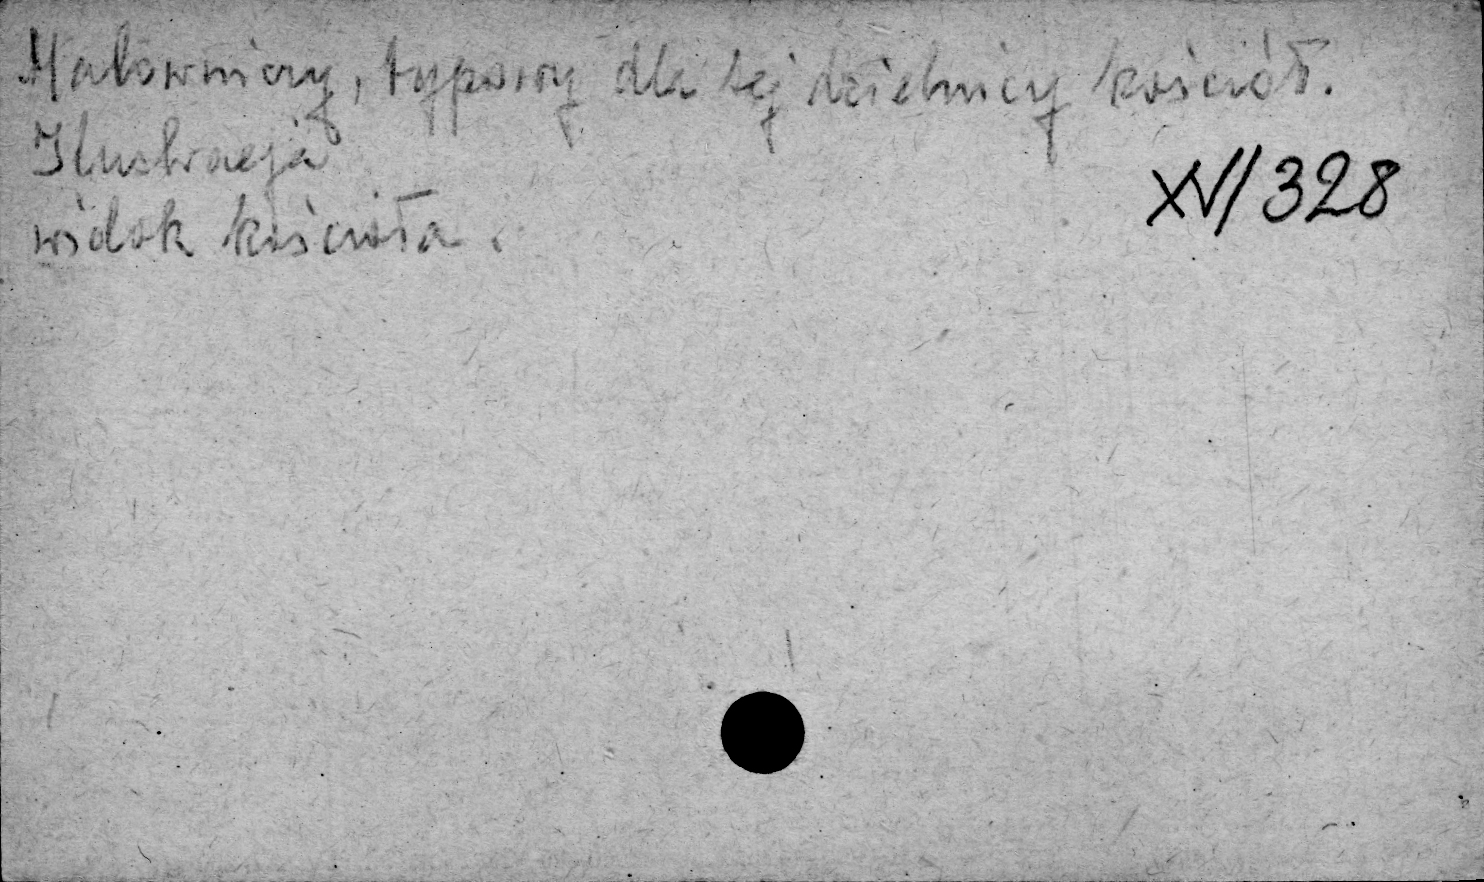 Malowniczy, typowy dla tej dzielnicy kościół.
Ilustracja
widok kościoła.
XV/328